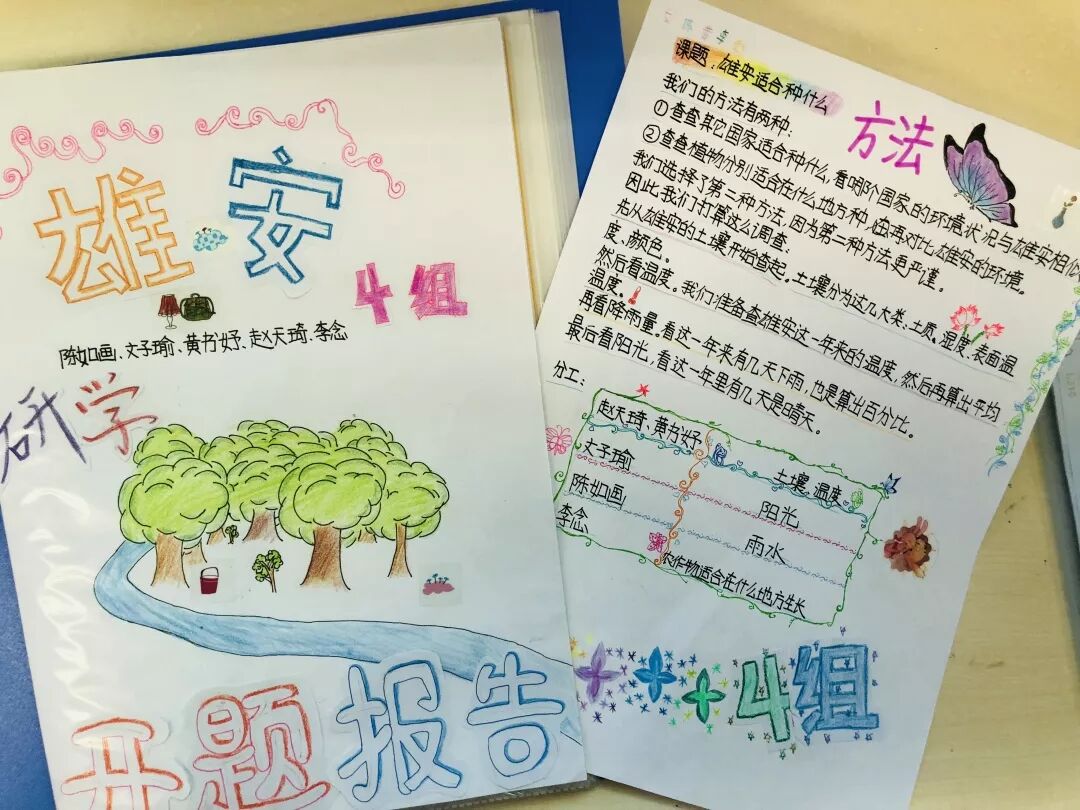 雄安
4组
陈如画、文子瑜、黄书妤、赵天琦、李念
研学
开题报告
课题：雄安适合种什么
方法
我们的方法有两种：
①查查其它国家适合种什么，看哪阶国家的环境状况与雄安相似
②查查植物分别适合在什么地方种，再对比雄安的环境。
我们选择了第二种方法，因为第二种方法更严谨。
因此我们打算这么调查：
先从雄安的土壤开始查起。土壤分为这几大类：土质。湿度、表面温
度、颜色。
然后看温度。我们准备查雄安这一年来的温度，然后再算出平均
温度。
再看降雨量。看这一年来有几天下雨，也是算出百分比。
最后看阳光，看这一年里有几天是晴天。
分工：
赵天琦、黄书妤 土壤。温度
文子瑜 阳光
陈如画 雨水
李念 农作物适合在什么地方生长
4组